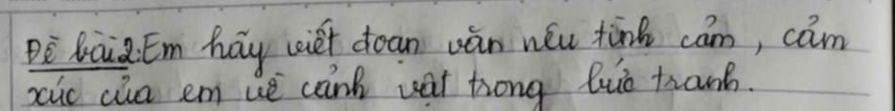 Đề bài 2: Em hãy viết đoạn văn nêu tình cảm, cảm
xúc của em về cảnh vật trong bức tranh.